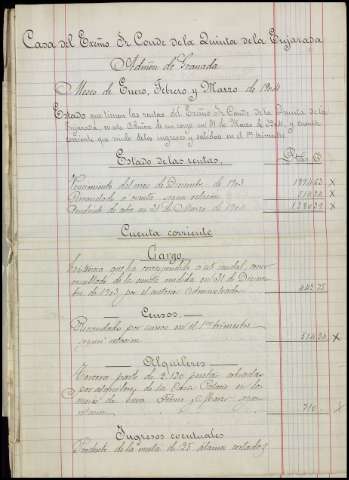 Casa del Exmo. Sr. Conde de la Quinta de la Enjarada
Admon de Granada
Meses de Enero, Febrero y Marzo de 1904
Estado que tienen las rentas del Exmo Sr. Conde de la Quinta de la
Enjarada, en esta Admon. de mi cargo en 31 de Marzo de 1904, y cuenta
corriente que rindo de los ingresos y salidas en el 1er trimestre
Estado de las rentas,
Vencimiento del mes de Diciembre de 1903
Recaudado á cuenta, segun relación
Cuenta corriente
Cargo
Existencia que ha correspondido a este caudal, como
resultado de la cuenta rendida en 31 de Diciem-
bre de 1903 por el anterior Administrador
442 75
Censos
Recaudado por censos en el 1er trimestre
segun relación
Alquileres
Tercera parte de 2.130 pesetas cobradas
por alquileres de la Casa
meses de Enero Febrero y Marzo segun
relación
710
Ingresos eventuales
Producto de la venta de 25 álamos cortados